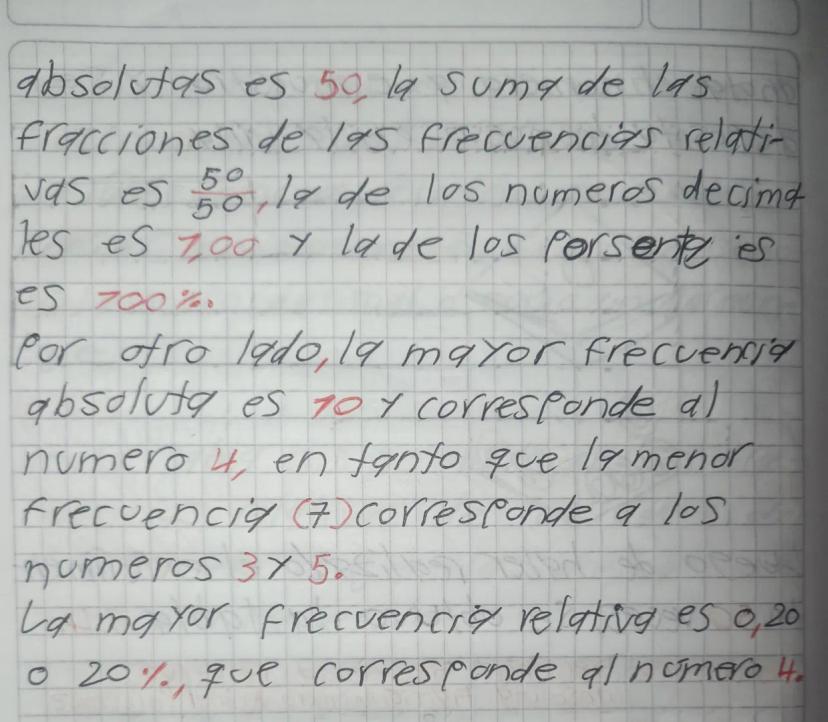 absolutas es 50, la suma de las
fracciones de las frecuencias relati-
vas es 50/50, la de los numeros decima
les es 1,00 y la de los Porsente es
es 100%.
Por otro lado, la mayor frecuencia
absoluta es 10 y corresponde al
numero 4, en tanto que la menor
frecuencia (7) corresponde a los
numeros 3 y 5.
La mayor frecuencia relativa es 0,20
o 20%, que corresponde al numero 4.